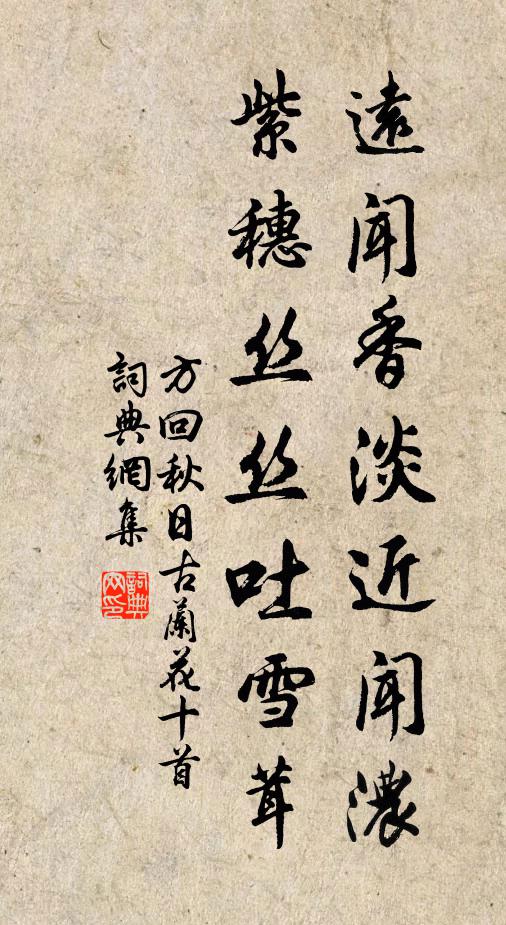 遠聞香淡近聞濃
紫穗丝丝吐雪茸
方回秋日古蘭花十首
詞典網集
詞典網印